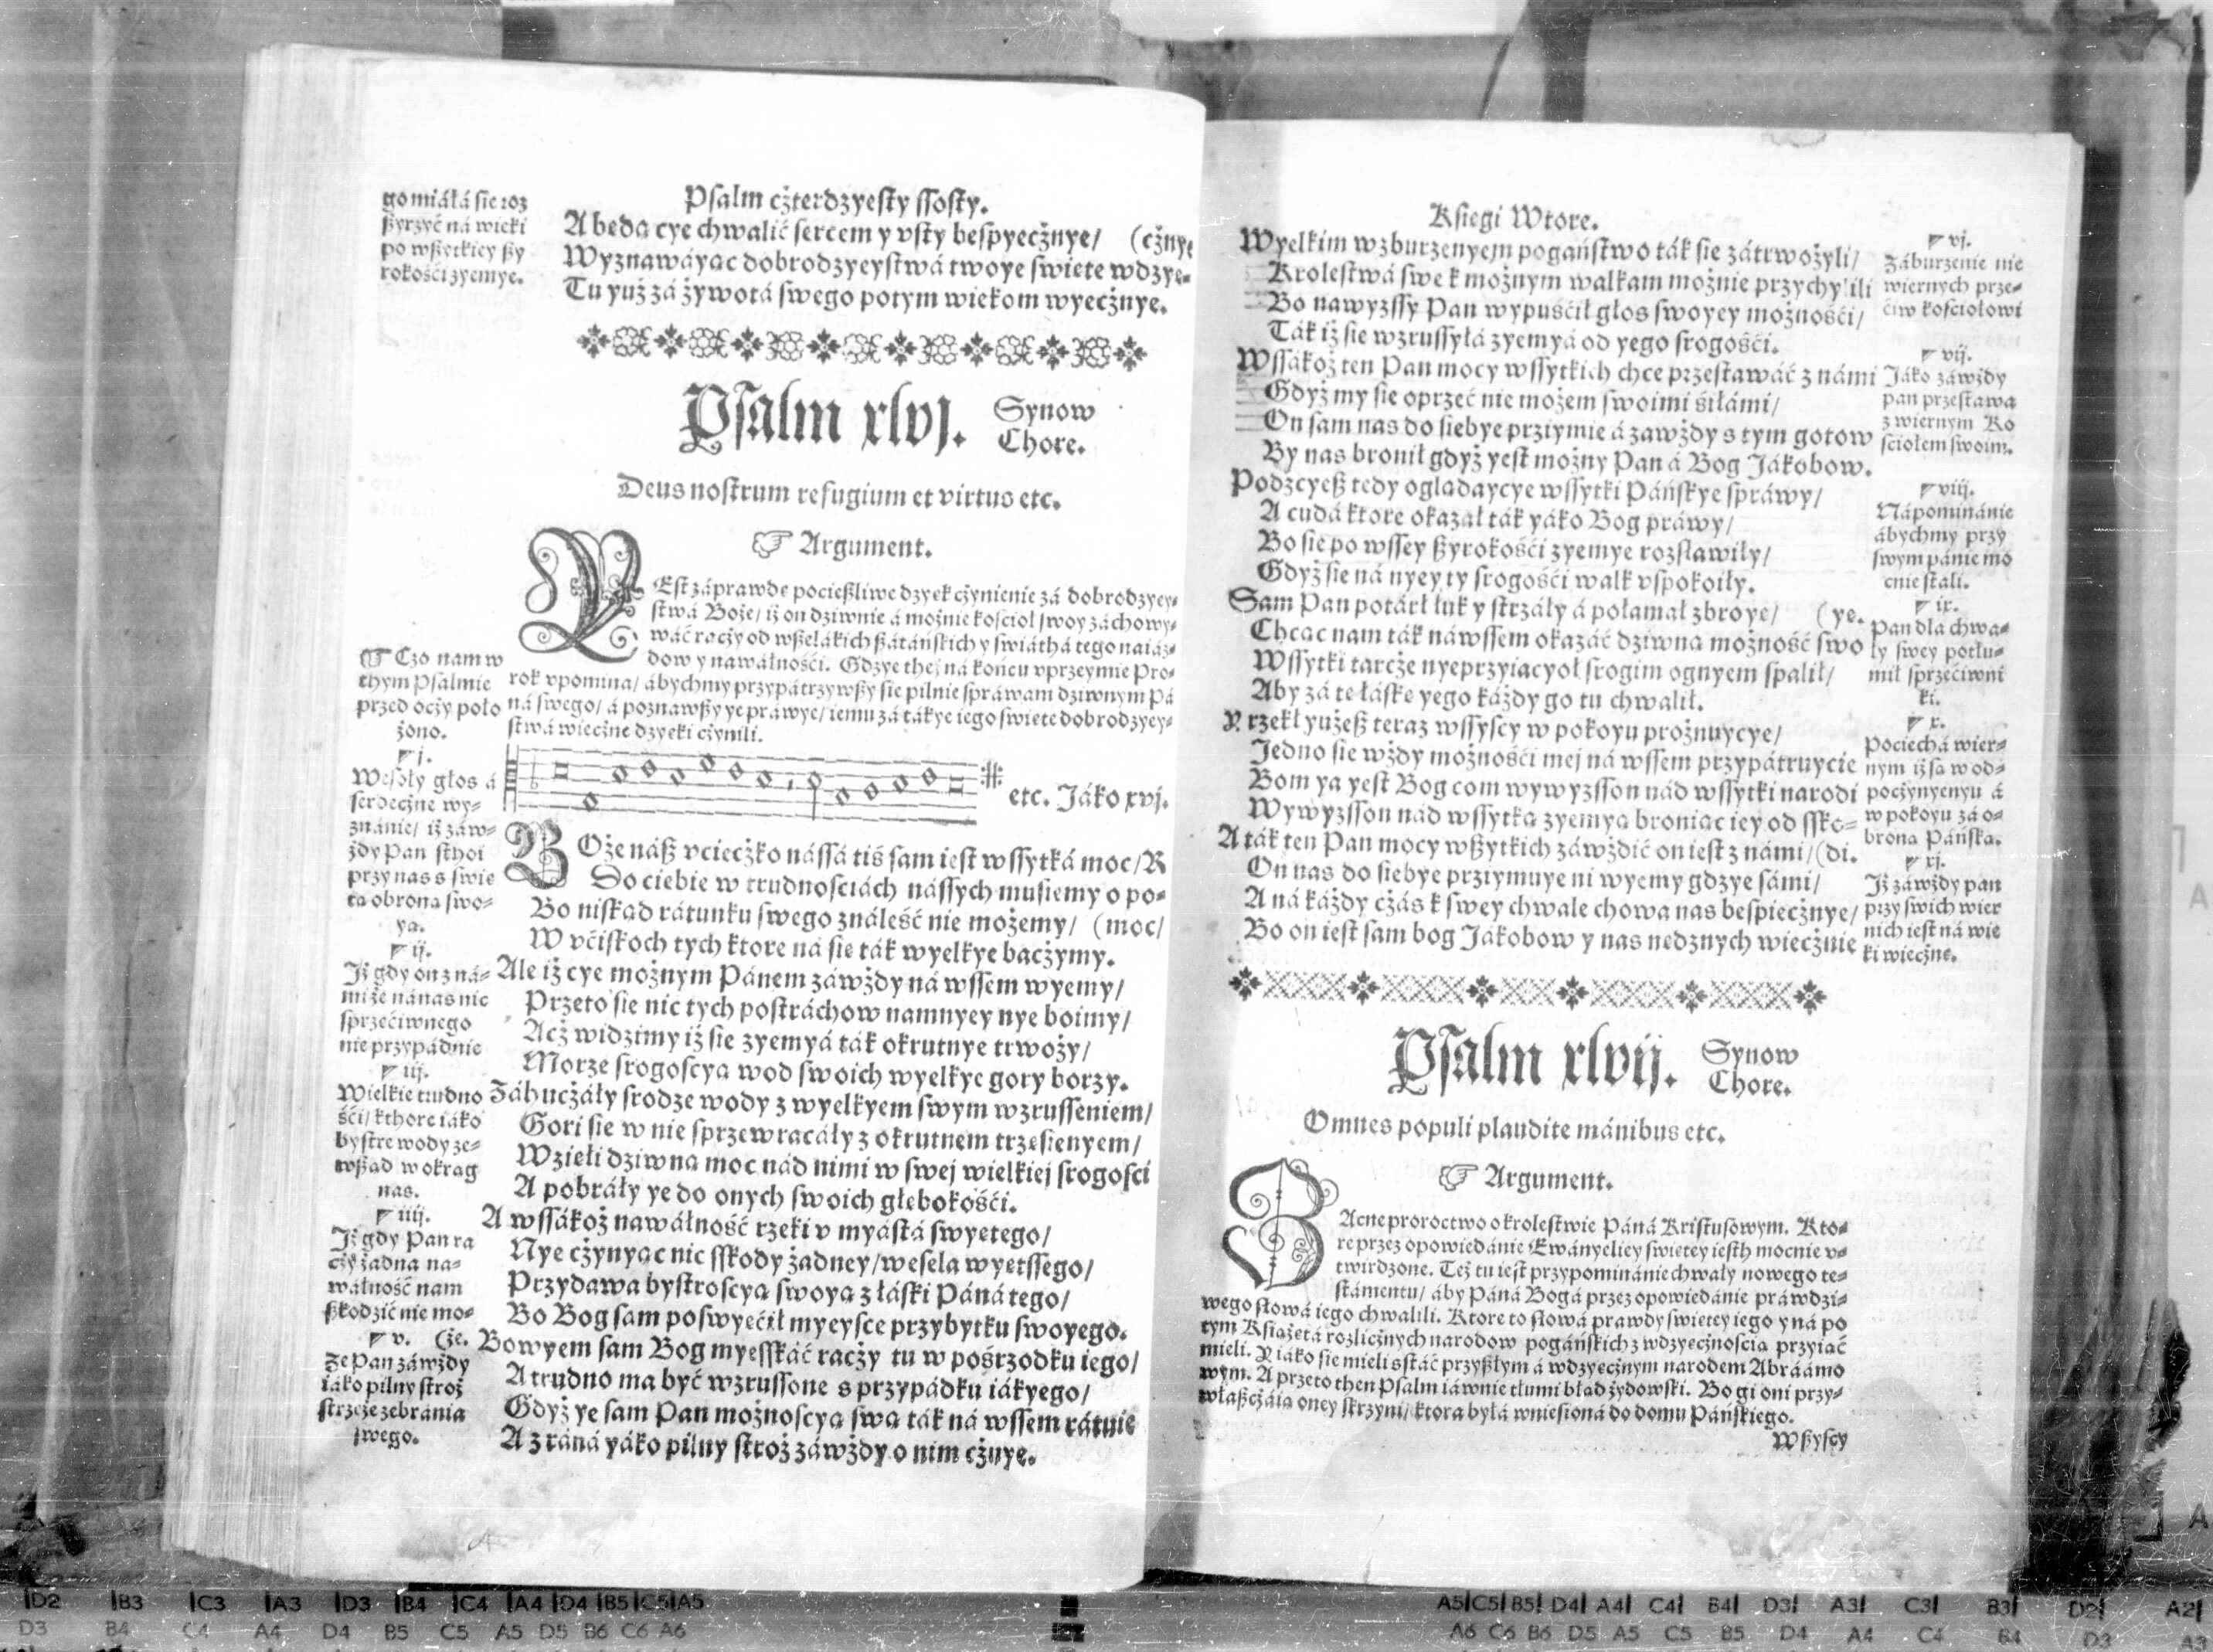 Psalm cżterdzyesty ssosty.
go miáłá sie roz
ßyrzyć ná wieki
po wßetkiey ßy
rokośći zyemye.
A beda cye chwalić sercem y vsty bespyecżnye/ (cżnye
Wyznawáyac dobrodzyeystwá twoye swiete wdzye-
Tu yuż zá żywotá swego potym wiekom wyecżnye.
Psalm xlvj. Synow
Chore.
Deus nostrum refugium et virtus etc.
Argument.
YEst záprawde pocießliwe dzyek cżynienie zá dobrodzyey-
stwá Boże/ iż on dziwnie á możnie kosciol swoy záchowy-
wáć racży od wßelákich ßátáńskich y swiáthá tego naiáz-
dow y nawálnośći. Gdzye thej ná końcu vprzeymie Pro-
rok vpomina/ ábychmy przypátrzywßy sie pilnie spráwam dziwnym Pá
ná swego/ á poznawßy ye práwye/ iemu zá tákye iego swiete dobrodzyey-
stwá wiecżne dzyeki cżynili.
Czo nam w
thym Psalmie
przed ocży poło
żono.
j.
Wesoły głos á
serdecżne wy-
znánie/ iż záw-
żdy Pan sthoi
przy nas s swie
ta obrona swo-
ya.
ij.
Jż gdy on z ná-
mi że ná nas nic
sprzećiwnego
nie przypádnie
iij.
Wielkie trudno
śći/ kthore iáko
bystre wody ze-
wßad w okrag
nas.
iiij.
Jż gdy Pan ra
cży żadna na-
wálność nam
ßkodzić nie mo-
v. (że.
Że Pan záwżdy
iáko pilny stroż
strzeże zebránia
swego.
etc. Jáko xvj.
BOże náß vciecżko nássá tiś sam iest wssytká moc/ R
Do ciebie w trudnosciách nássych musiemy o po-
Bo niskad rátunku swegoználeść nie możemy/ (moc/
W vćiskoch tych ktore ná sie ták wyelkye bacżymy.
Ale iż cye możnym Pánem záwżdy ná wssem wyemy/
Przeto sie nic tych postráchow namnyey nye boimy/
Acż widzimy iż sie zyemyá ták okrutnye trwoży/
Morze srogoscya wod swoich wyelkye gory borzy.
Záhucżáły srodze wody z wyelkyem swym wzrusseniem/
Gori sie w nie sprzewracáły z okrutnem trzesienyem/
Wzieli dziwna moc nád nimi w swej wielkiej srogosci
A pobráły ye do onych swoich głebokośći.
A wssákoż nawálność rzeki v myástá swyetego/
Nye cżynyac nic sskody żadney/ wesela wyetssego/
Przydawa bystroscya swoya z łáski Páná tego/
Bo Bog sam poswyećił myeysce przybytku swoyego.
Bowyem sam Bog myesskáć racży tu w pośrzodku iego/
A trudno ma być wzrussone s przypádku iákyego/
Gdyż ye sam Pan możnoscya swa ták ná wssem rátuie
A z ráná yáko pilny stroż záwżdy o nim cżuye.
Ksiegi Wtore.
Wyelkim wzburzenyem pogaństwo ták sie zátrwożyli/
Krolestwá swe k możnym walkam możnie przychylili
Bo nawyzssy Pan wypuśćił głos swoyey możnośći/
Ták iż sie wzrussyłá zyemyá od yego srogośći.
Wssákoż ten Pan mocy wssytkich chce przestawáć z námi
Gdyż my sie oprzeć nie możem swoimi śiłámi/
On sam nas do siebye przyimie á zawżdy s tym gotow
By nas bronił gdyż yest możny Pan á Bog Jákobow.
Podzcyeß tedy ogladaycye wssytki Páńskye spráwy/
A cudá ktore okazał ták yáko Bog práwy/
Bo sie po wssey ßyrokośći zyemye rozsławiły/
Gdyż sie ná nyey ty srogośći walk vspokoiły.
Sam Pan potárł łuk y strzáły á połamał zbroye/ (ye.
Chcac nam ták náwssem okazáć dziwna możność swo
Wssytki tarcże nyeprzyiacyoł srogim ognyem spalił/
Aby zá te łáske yego káżdy go tu chwalił.
Y rzekł yużeß teraz wssyscy w pokoyu prożnuycye/
Jedno sie wżdy możnośći mej ná wssem przypátruycie
Bom ya yest Bog com wywyzsson nád wssytki narodi
Wywyzsson nád wssytka zyemya broniac iey od ssko-
A ták ten Pan mocy wßytkich záwżdić on iest z námi/ (di.
On nas do siebye przyimuye ni wyemy gdzye sámi/
A ná káżdy cżás k swey chwale chowa nas bespiecżnye/
Bo on iest sam bog Jákobow y nas nedznych wiecżnie
vj.
Záburzenie nie
wiernych prze-
ćiw kosciołowi
vij.
Jáko záwżdy
pan przestawa
z wiernym Ko
sciołem swoim.
viij.
Nápominánie
ábychmy przy
swym pánie mo
cnie stali.
ix.
Pan dla chwa-
ły swey potłu-
mił sprzećiwni
ki.
x.
Pociechá wier-
nym iż sa w od-
pocżynyenyu á
w pokoyu zá o-
brona Páńska.
xj.
Jż záwżdy pan
przy swich wier
nich iest ná wie
ki wiecżne.
Psalm xlvij. Synow
Chore.
Omnes populi plaudite mánibus etc.
Argument.
ZAcne proroctwo o krolestwie Páná Kristusowym. Kto-
re przez opowiedánie Ewányeliey swietey iesth mocnie v-
twirdzone. Też tu iest przypominánie chwały nowego te-
stámentu/ áby Páná Bogá przez opowiedánie práwdzi-
wego słowá iego chwalili. Ktore to słowá prawdy swietey iego y ná po
tym Ksiażetá rozlicżnych narodow pogáńskich z wdzyecżnoscia przyiać
mieli. Y iáko sie mieli sstáć przyßłym á wdzyecżnym narodem Abráámo
wym. A przeto then Psalm iáwnie tłumi bład żydowski. Bo gi oni przy-
właßcżáia oney skrzyni/ ktora byłá wniesioná do domu Páńskiego.
Wßyscy
D2 B3 C3 A3 D3 B4 C4 A4 D4 B5 C5 A5
D3 B4 C4 A4 D4 B5 C5 A5 D5 B6 C6 A6
A5 C5 B5 D4 A4 C4 B4 D3 A3 C3 B3 D2 A2
A6 C6 B6 D5 A5 C5 B5 D4 A4 C4 B4 D3 A3